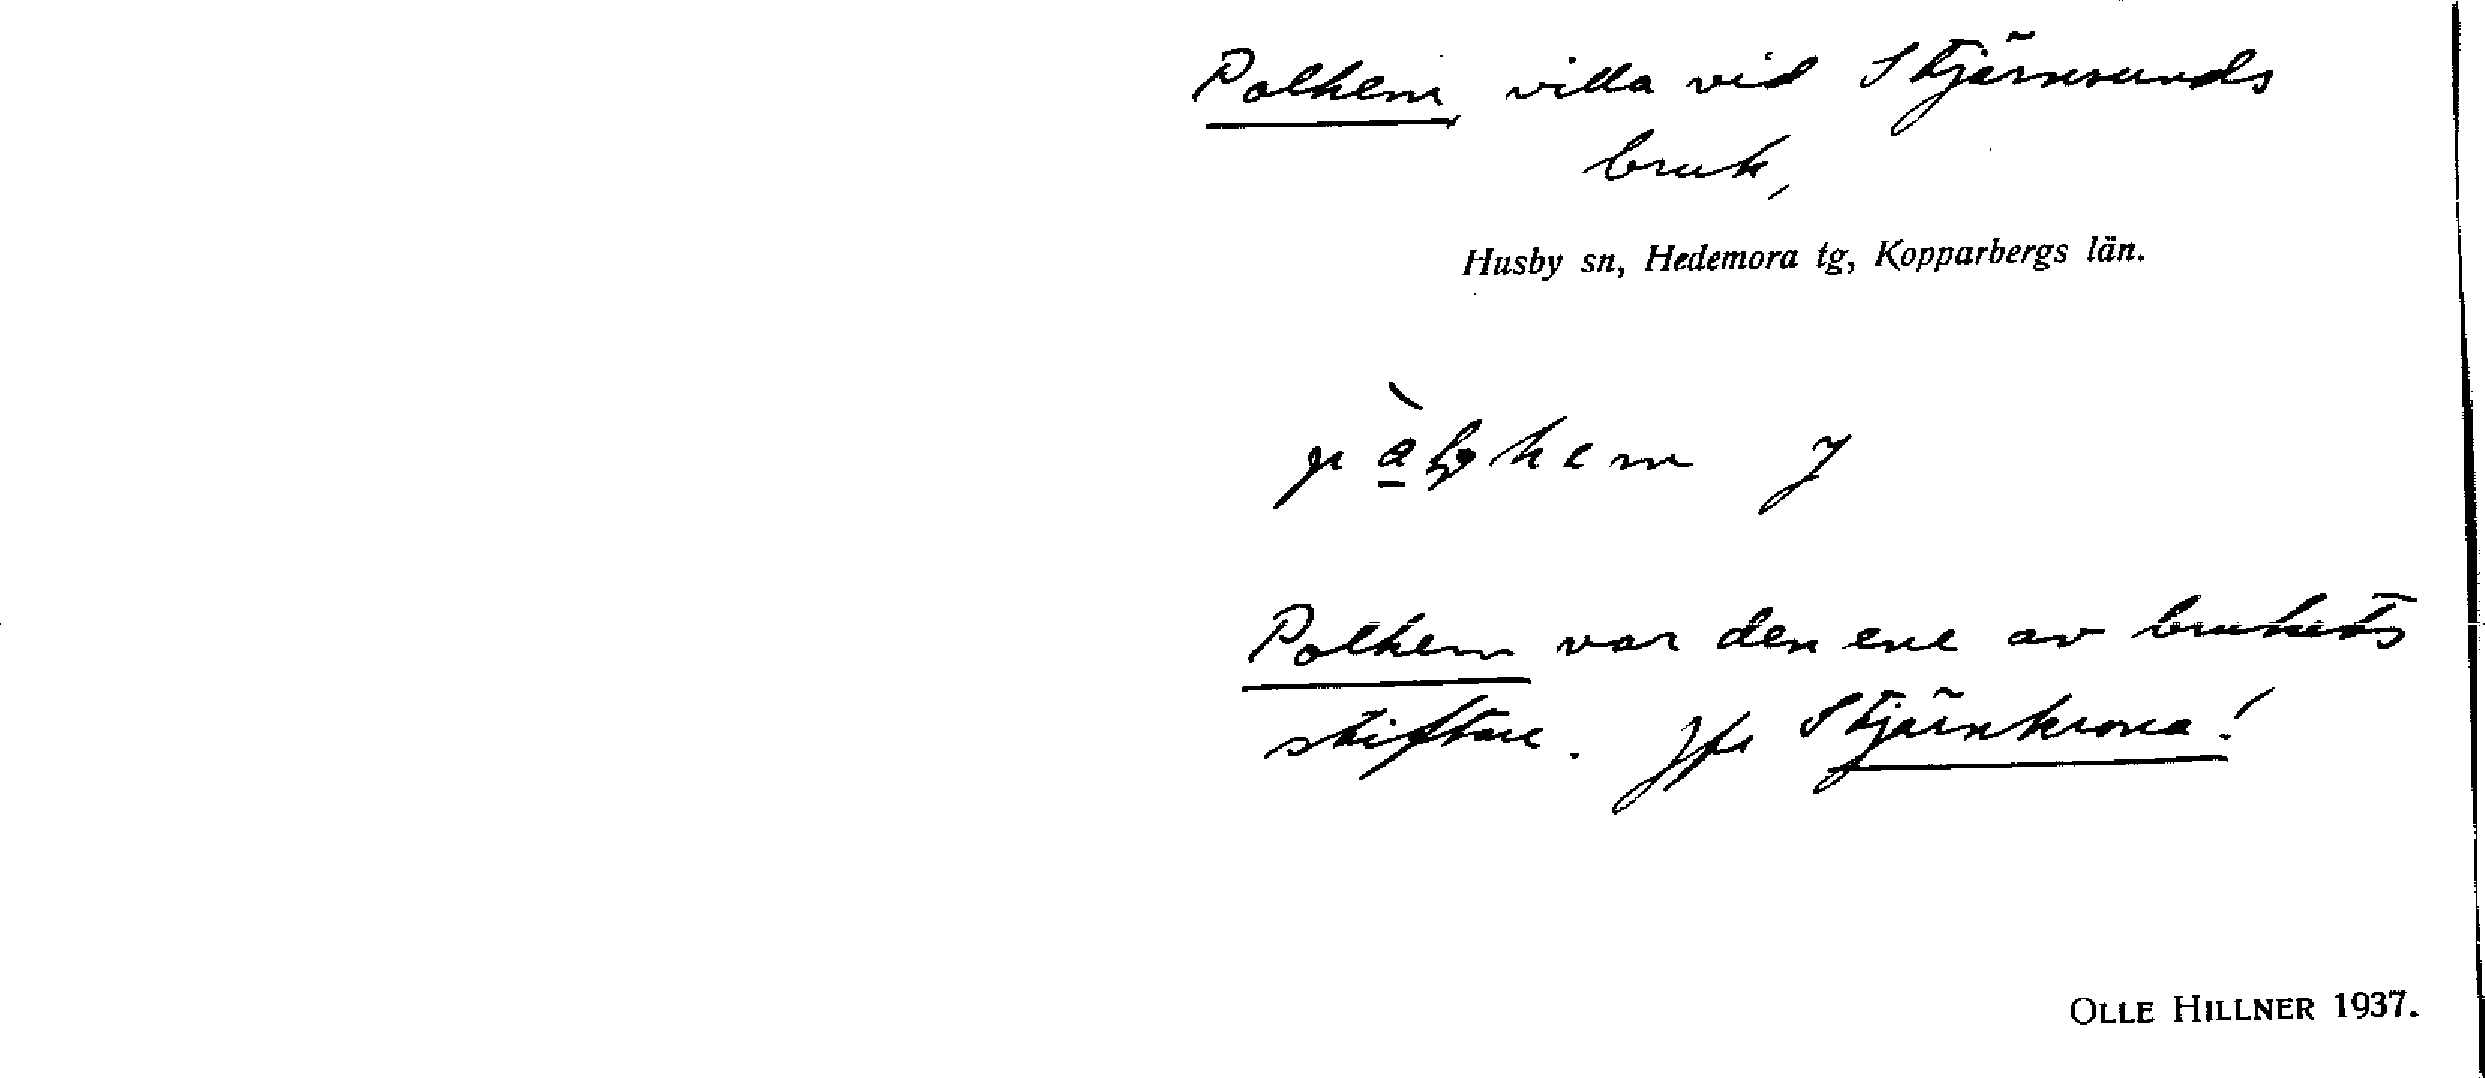 Polhem, villa vid Stjärnsunds
bruk,
Husby sn, Hedemora tg, Kopparbergs län.
hem J
Polhem var den ene av brukets
stiftare. Jfr Stjärnkrona!
OLLE HILLNER 1937.